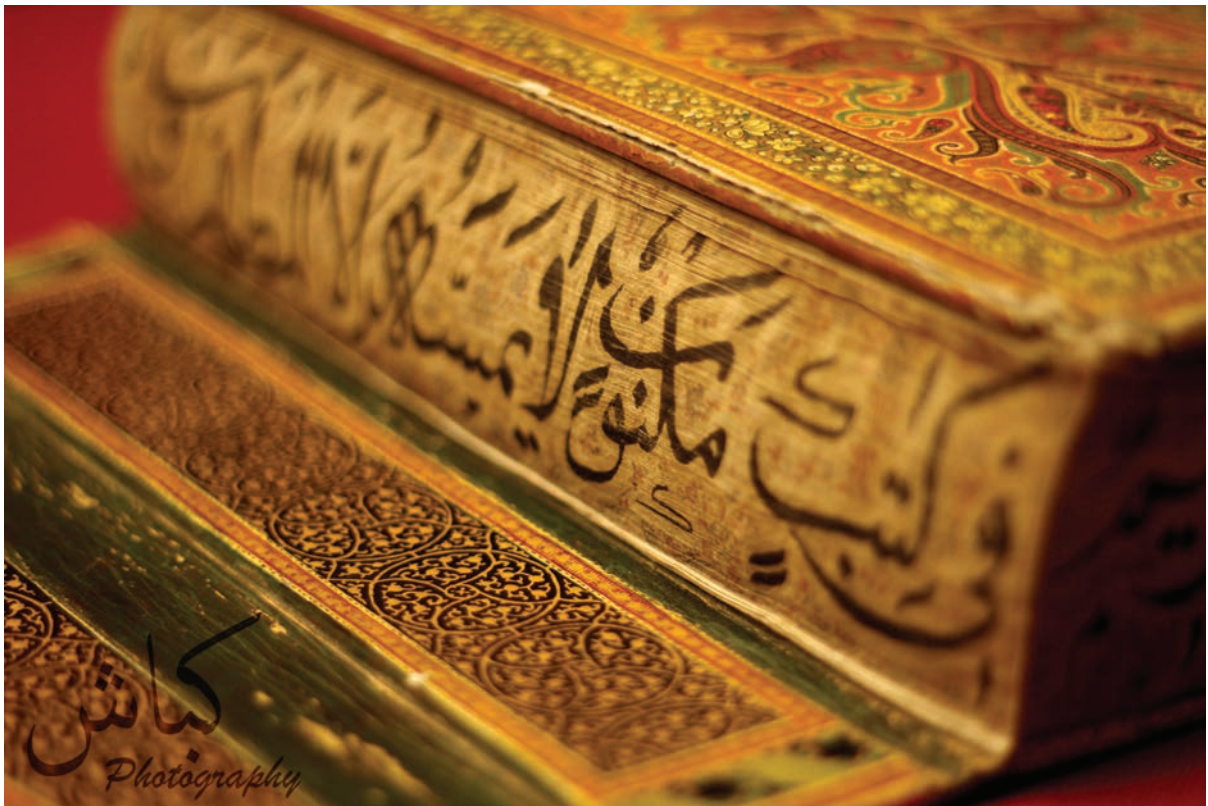 في كتب مكنون لا يمسه إلا
كباش
Photography